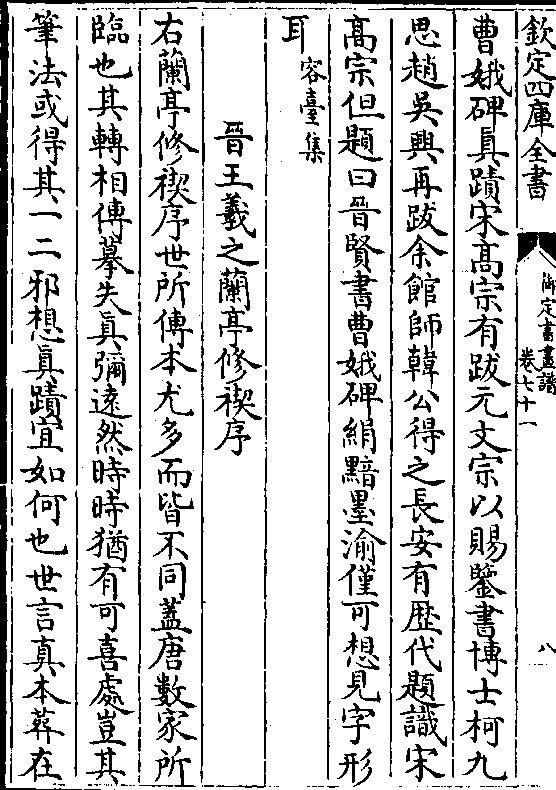 欽定四庫全書
御定書畫譜
卷七十一
八
曹娥碑真蹟宋高宗有跋元文宗以賜鑒書博士柯九
思趙吳興再跋余館師韓公得之長安有歴代題識宋
高宗但題曰晉賢書曹娥碑絹黯墨渝僅可想見字形
耳容臺集
晉王羲之蘭亭修禊序
右蘭亭修禊序世所傳本尤多而皆不同蓋唐數家所
臨也其轉相傳摹失真彌遠然時時猶有可喜處豈其
筆法或得其一二邪想真蹟宜如何也世言真本葬在